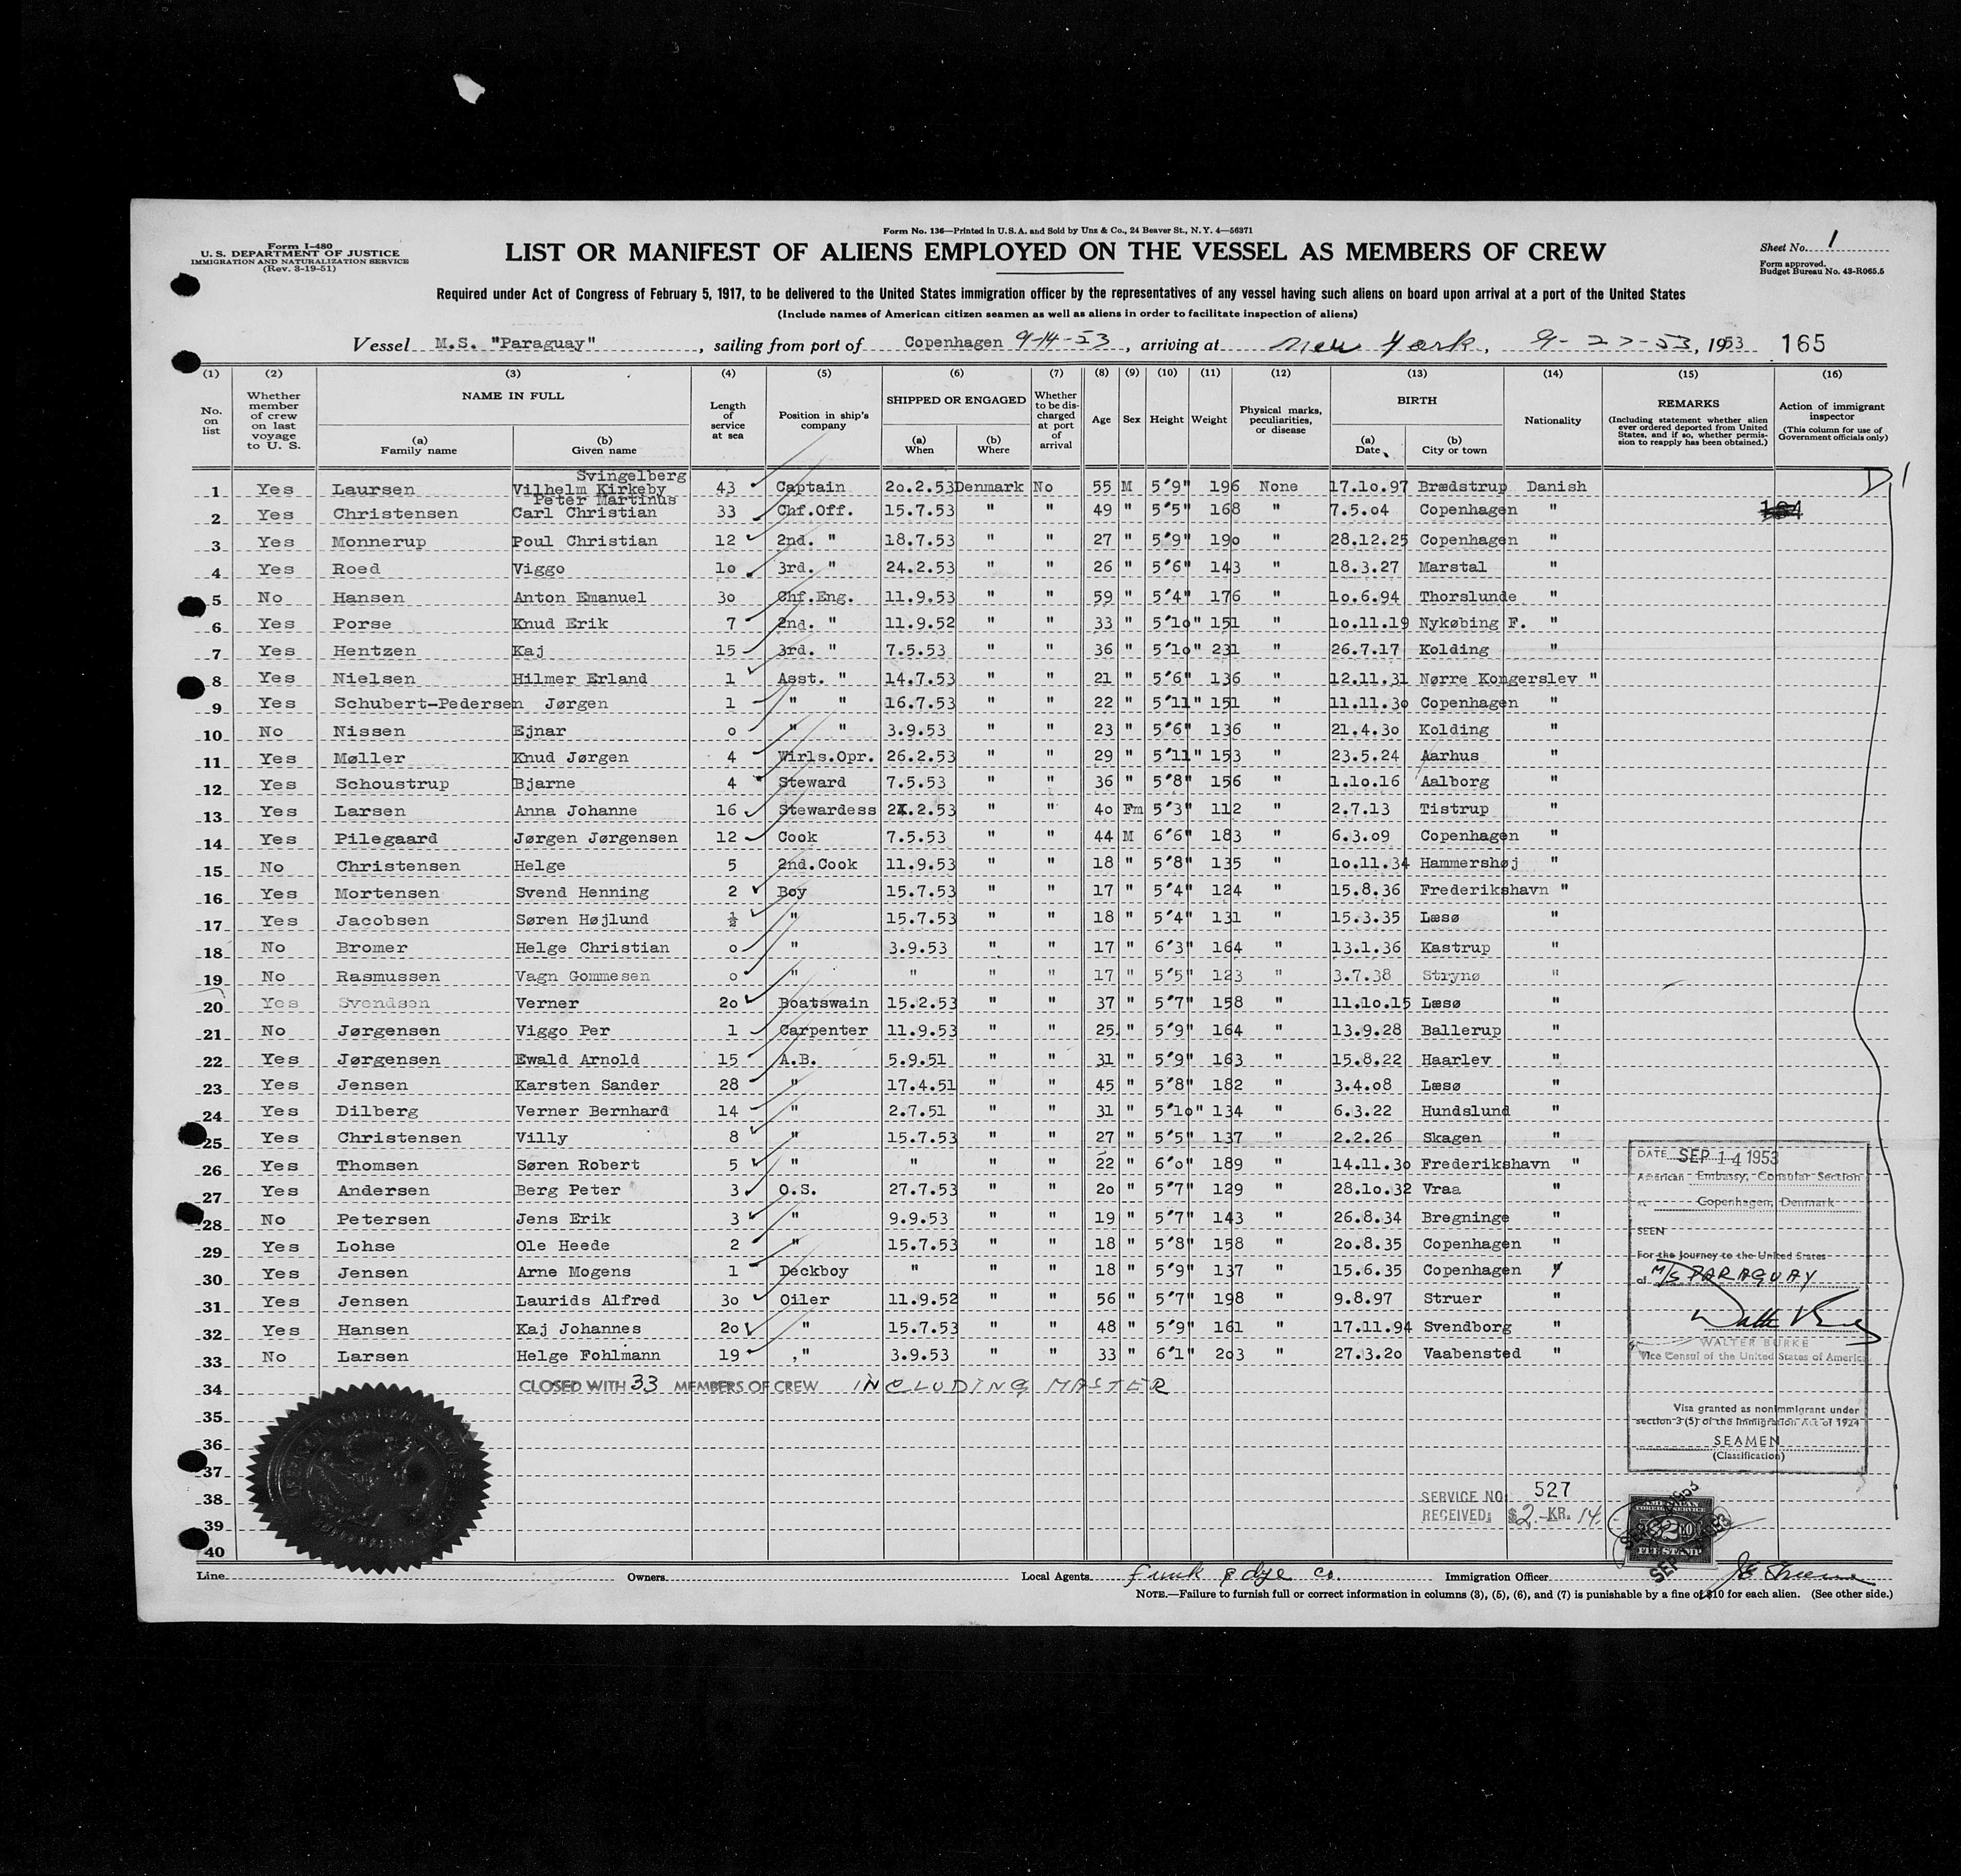 Form No. 136—Printed in U.S.A. and Sold by Unz & Co., 24 Beaver St., N.Y. 4—56371
Form I-480
U. S. DEPARTMENT OF JUSTICE
IMMIGRATION AND NATURALIZATION SERVICE
(Rev. 3-19-51)
LIST OR MANIFEST OF ALIENS EMPLOYED ON THE VESSEL AS MEMBERS OF CREW
Sheet No. 1
Form approved.
Budget Bureau No. 43-R065.5
Required under Act of Congress of February 5, 1917, to be delivered to the United States immigration officer by the representatives of any vessel having such aliens on board upon arrival at a port of the United States
(Include names of American citizen seamen as well as aliens in order to facilitate inspection of aliens)
Vessel M.S. "Paraguay", sailing from port of Copenhagen 9-14-53, arriving at New York, 9-27-53, 1953 165
(1) (2) (3) (4) (5) (6) (7) (8) (9) (10) (11) (12) (13) (14) (15) (16)
No. on list
Whether member of crew on last voyage to U. S.
NAME IN FULL
(a) Family name
(b) Given name
Length of service at sea
Position in ship's company
SHIPPED OR ENGAGED
(a) When
(b) Where
Whether to be discharged at port of arrival
Age
Sex
Height
Weight
Physical marks, peculiarities, or disease
BIRTH
(a) Date
(b) City or town
Nationality
REMARKS
(Including statement whether alien ever ordered deported from United States, and if so, whether permission to reapply has been obtained.)
Action of immigrant inspector
(This column for use of Government officials only)
Svingelberg
1 Yes Laursen Vilhelm Kirkeby 43 Captain 20.2.53 Denmark No 55 M 5'9" 196 None 17.10.97 Brædstrup Danish
Peter Martinus
2 Yes Christensen Carl Christian 33 Chf.Off. 15.7.53 " " 49 " 5'5" 168 " 7.5.04 Copenhagen "
3 Yes Monnerup Poul Christian 12 2nd. " 18.7.53 " " 27 " 5'9" 190 " 28.12.25 Copenhagen "
4 Yes Roed Viggo 10 3rd. " 24.2.53 " " 26 " 5'6" 143 " 18.3.27 Marstal "
5 No Hansen Anton Emanuel 30 Chf.Eng. 11.9.53 " " 59 " 5'4" 176 " 10.6.94 Thorslunde "
6 Yes Porse Knud Erik 7 2nd. " 11.9.52 " " 33 " 5'10" 151 " 10.11.19 Nykøbing F. "
7 Yes Hentzen Kaj 15 3rd. " 7.5.53 " " 36 " 5'10" 231 " 26.7.17 Kolding "
8 Yes Nielsen Hilmer Erland 1 Asst. " 14.7.53 " " 21 " 5'6" 136 " 12.11.31 Nørre Kongerslev "
9 Yes Schubert-Pedersen Jørgen 1 " " 16.7.53 " " 22 " 5'11" 151 " 11.11.30 Copenhagen "
10 No Nissen Ejnar 0 " " 3.9.53 " " 23 " 5'6" 136 " 21.4.30 Kolding "
11 Yes Møller Knud Jørgen 4 Wirls.Opr. 26.2.53 " " 29 " 5'11" 153 " 23.5.24 Aarhus "
12 Yes Schoustrup Bjarne 4 Steward 7.5.53 " " 36 " 5'8" 156 " 1.10.16 Aalborg "
13 Yes Larsen Anna Johanne 16 Stewardess " " 40 Fm 5'3" 112 " 2.7.13 Tistrup "
14 Yes Pilegaard Jørgen Jørgensen 12 Cook 7.5.53 " " 44 M 6'6" 183 " 6.3.09 Copenhagen "
15 No Christensen Helge 5 2nd.Cook 11.9.53 " " 18 " 5'8" 135 " 10.11.34 Hammershøj "
16 Yes Mortensen Svend Henning 2 Boy 15.7.53 " " 17 " 5'4" 124 " 15.8.36 Frederikshavn "
17 Yes Jacobsen Søren Højlund ½ " 15.7.53 " " 18 " 5'4" 131 " 15.3.35 Læsø "
18 No Bromer Helge Christian 0 " 3.9.53 " " 17 " 6'3" 164 " 13.1.36 Kastrup "
19 No Rasmussen Vagn Gommesen 0 " " " " 17 " 5'5" 123 " 3.7.38 Strynø "
20 Yes Svendsen Verner 20 Boatswain 15.2.53 " " 37 " 5'7" 158 " 11.10.15 Læsø "
21 No Jørgensen Viggo Per 1 Carpenter 11.9.53 " " 25 " 5'9" 164 " 13.9.28 Ballerup "
22 Yes Jørgensen Ewald Arnold 15 A.B. 5.9.51 " " 31 " 5'9" 163 " 15.8.22 Haarlev "
23 Yes Jensen Karsten Sander 28 " 17.4.51 " " 45 " 5'8" 182 " 3.4.08 Læsø "
24 Yes Dilberg Verner Bernhard 14 " 2.7.51 " " 31 " 5'10" 134 " 6.3.22 Hundslund "
25 Yes Christensen Villy 8 " 15.7.53 " " 27 " 5'5" 137 " 2.2.26 Skagen "
26 Yes Thomsen Søren Robert 5 " " " " 22 " 6'0" 189 " 14.11.30 Frederikshavn "
27 Yes Andersen Berg Peter 3 O.S. 27.7.53 " " 20 " 5'7" 129 " 28.10.32 Vraa "
28 No Petersen Jens Erik 3 " 9.9.53 " " 19 " 5'7" 143 " 26.8.34 Bregninge "
29 Yes Lohse Ole Heede 2 " 15.7.53 " " 18 " 5'8" 158 " 20.8.35 Copenhagen "
30 Yes Jensen Arne Mogens 1 Deckboy " " " 18 " 5'9" 137 " 15.6.35 Copenhagen "
31 Yes Jensen Laurids Alfred 30 Oiler 11.9.52 " " 56 " 5'7" 198 " 9.8.97 Struer "
32 Yes Hansen Kaj Johannes 20 " 15.7.53 " " 48 " 5'9" 161 " 17.11.94 Svendborg "
33 No Larsen Helge Fohlmann 19 " 3.9.53 " " 33 " 6'1" 203 " 27.3.20 Vaabensted "
34 CLOSED WITH 33 MEMBERS OF CREW INCLUDING MASTER
35
36
37
38
39
40
DATE SEP 14 1953
American Embassy, Consular Section
at Copenhagen, Denmark
SEEN
For the Journey to the United States
of M/S PARAGUAY
WALTER BURKE
Vice Consul of the United States of America
Visa granted as nonimmigrant under
section 3 (5) of the Immigration Act of 1924
SEAMEN
(Classification)
SERVICE NO. 527
RECEIVED: $2.- KR. 14.
AMERICAN
FOREIGN SERVICE
FEE STAMP
Line Owners Local Agents Funk Edye Co. Immigration Officer
NOTE.—Failure to furnish full or correct information in columns (3), (5), (6), and (7) is punishable by a fine of $10 for each alien. (See other side.)